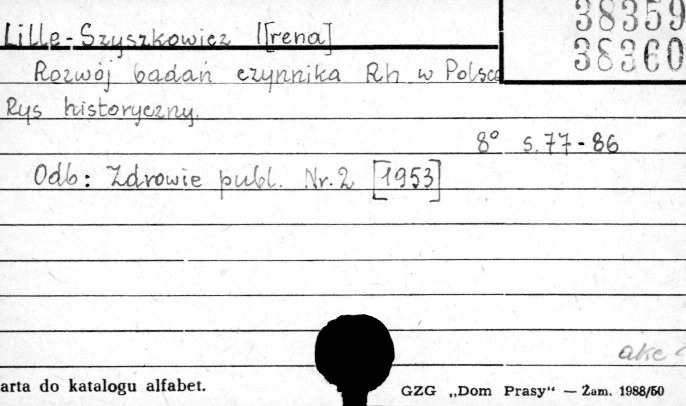 38359
38360
Lille-Szyszkowicz I[rena]
Rozwój badań czynnika Rh w Polsce
Rys historyczny.
8° s. 77-86
Odb: Zdrowie publ. Nr. 2 [1953]
akc
arta do katalogu alfabet.
GZG „Dom Prasy“ — Zam. 1988/50